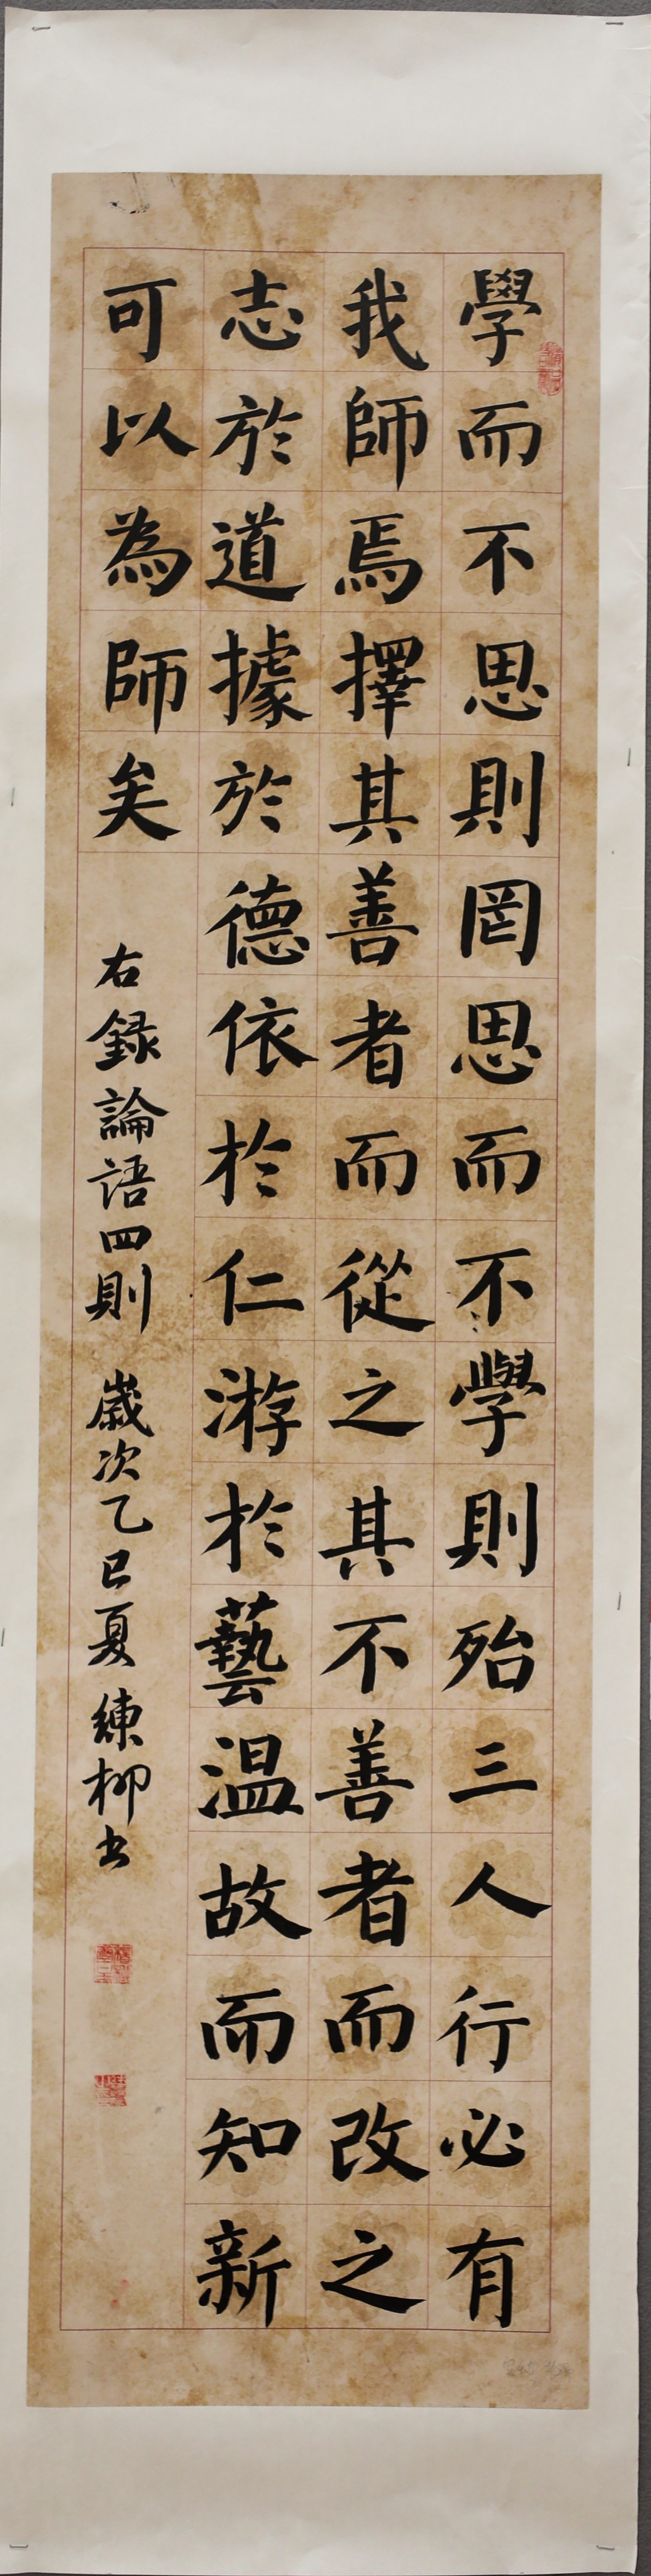 學而不思則罔思而不學則殆三人行必有
我師焉擇其善者而從之其不善者而改之
志於道據於德依於仁游於藝溫故而知新
可以為師矣
右録論語四則 歲次乙巳夏 練柳書